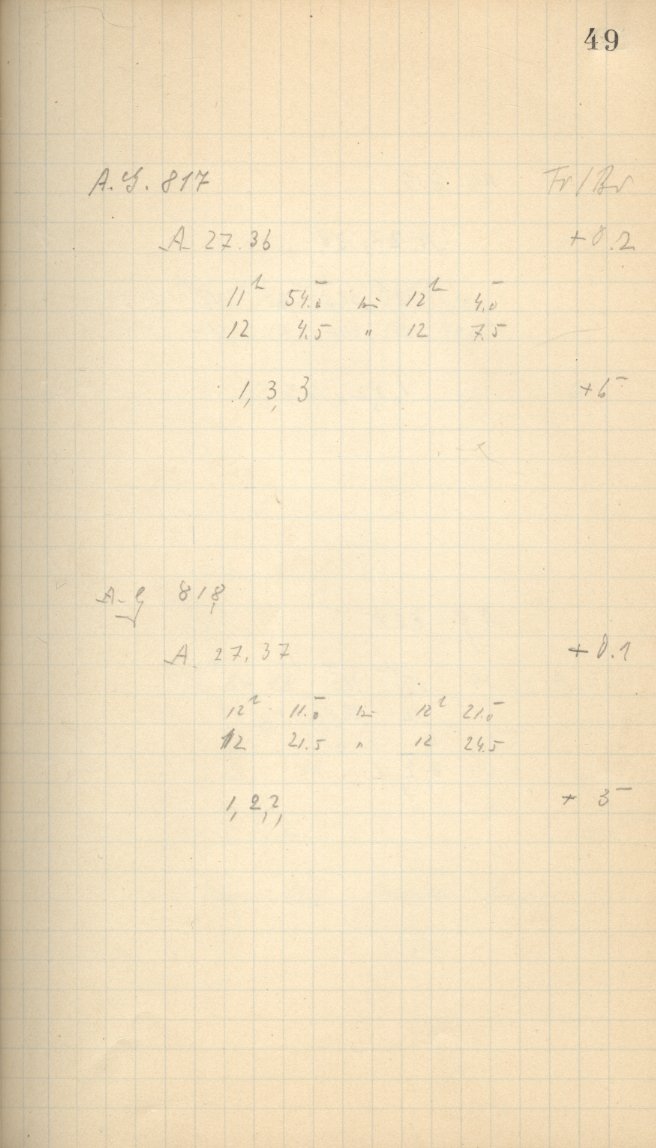 49
A.G. 817 Fr/Br
A 27.36 +0.2
11h 54.0 bis 12h 4.0
12 4.5 " 12 7.5
1, 3, 3 +6
A.G 818
A 27.37 +0.1
12h 11.0 bis 12h 21.0
12 21.5 " 12 24.5
1, 2, 2, + 3